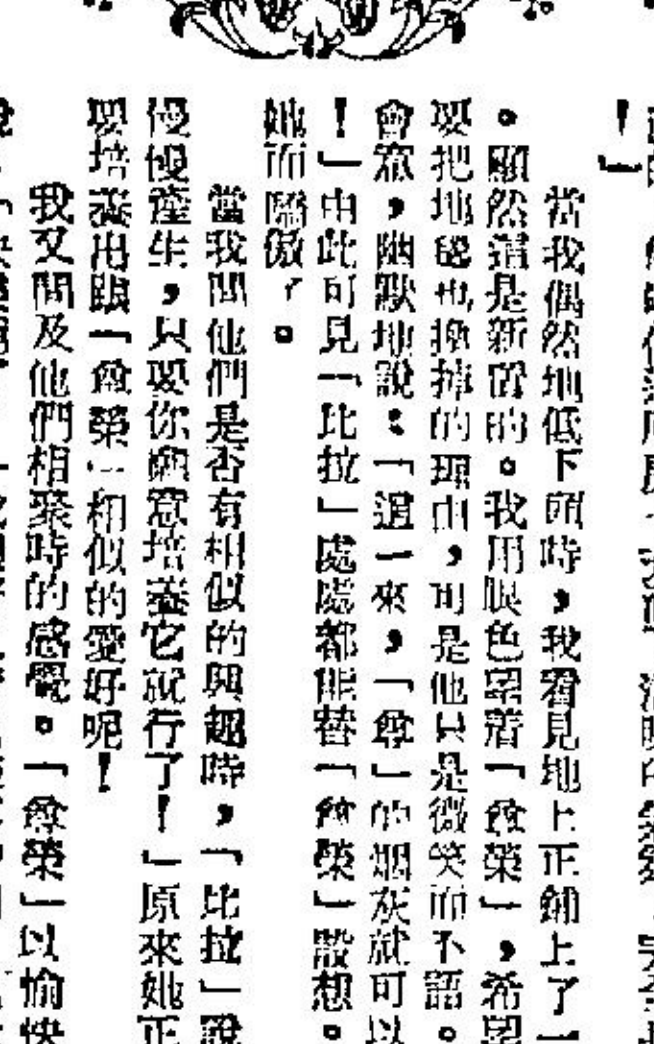 ！」
當我偶然地低下頭時，我看見地上正鋪上了一
。顯然這是新買的。我用眼色望着「尊榮」，希望
要把地毯也換掉的理由，可是他只是微笑而不語。
會意，幽默地說：「這一來，「尊」的烟灰就可以
！」由此可見「比拉」處處都能替「尊榮」設想。
她而驕傲了。
當我問他們是否有相似的興趣時，「比拉」說
慢慢產生，只要你願意培養它就行了！」原來她正
要培養出跟「尊榮」相似的愛好呢！
我又問及他們相聚時的感覺。「尊榮」以愉快